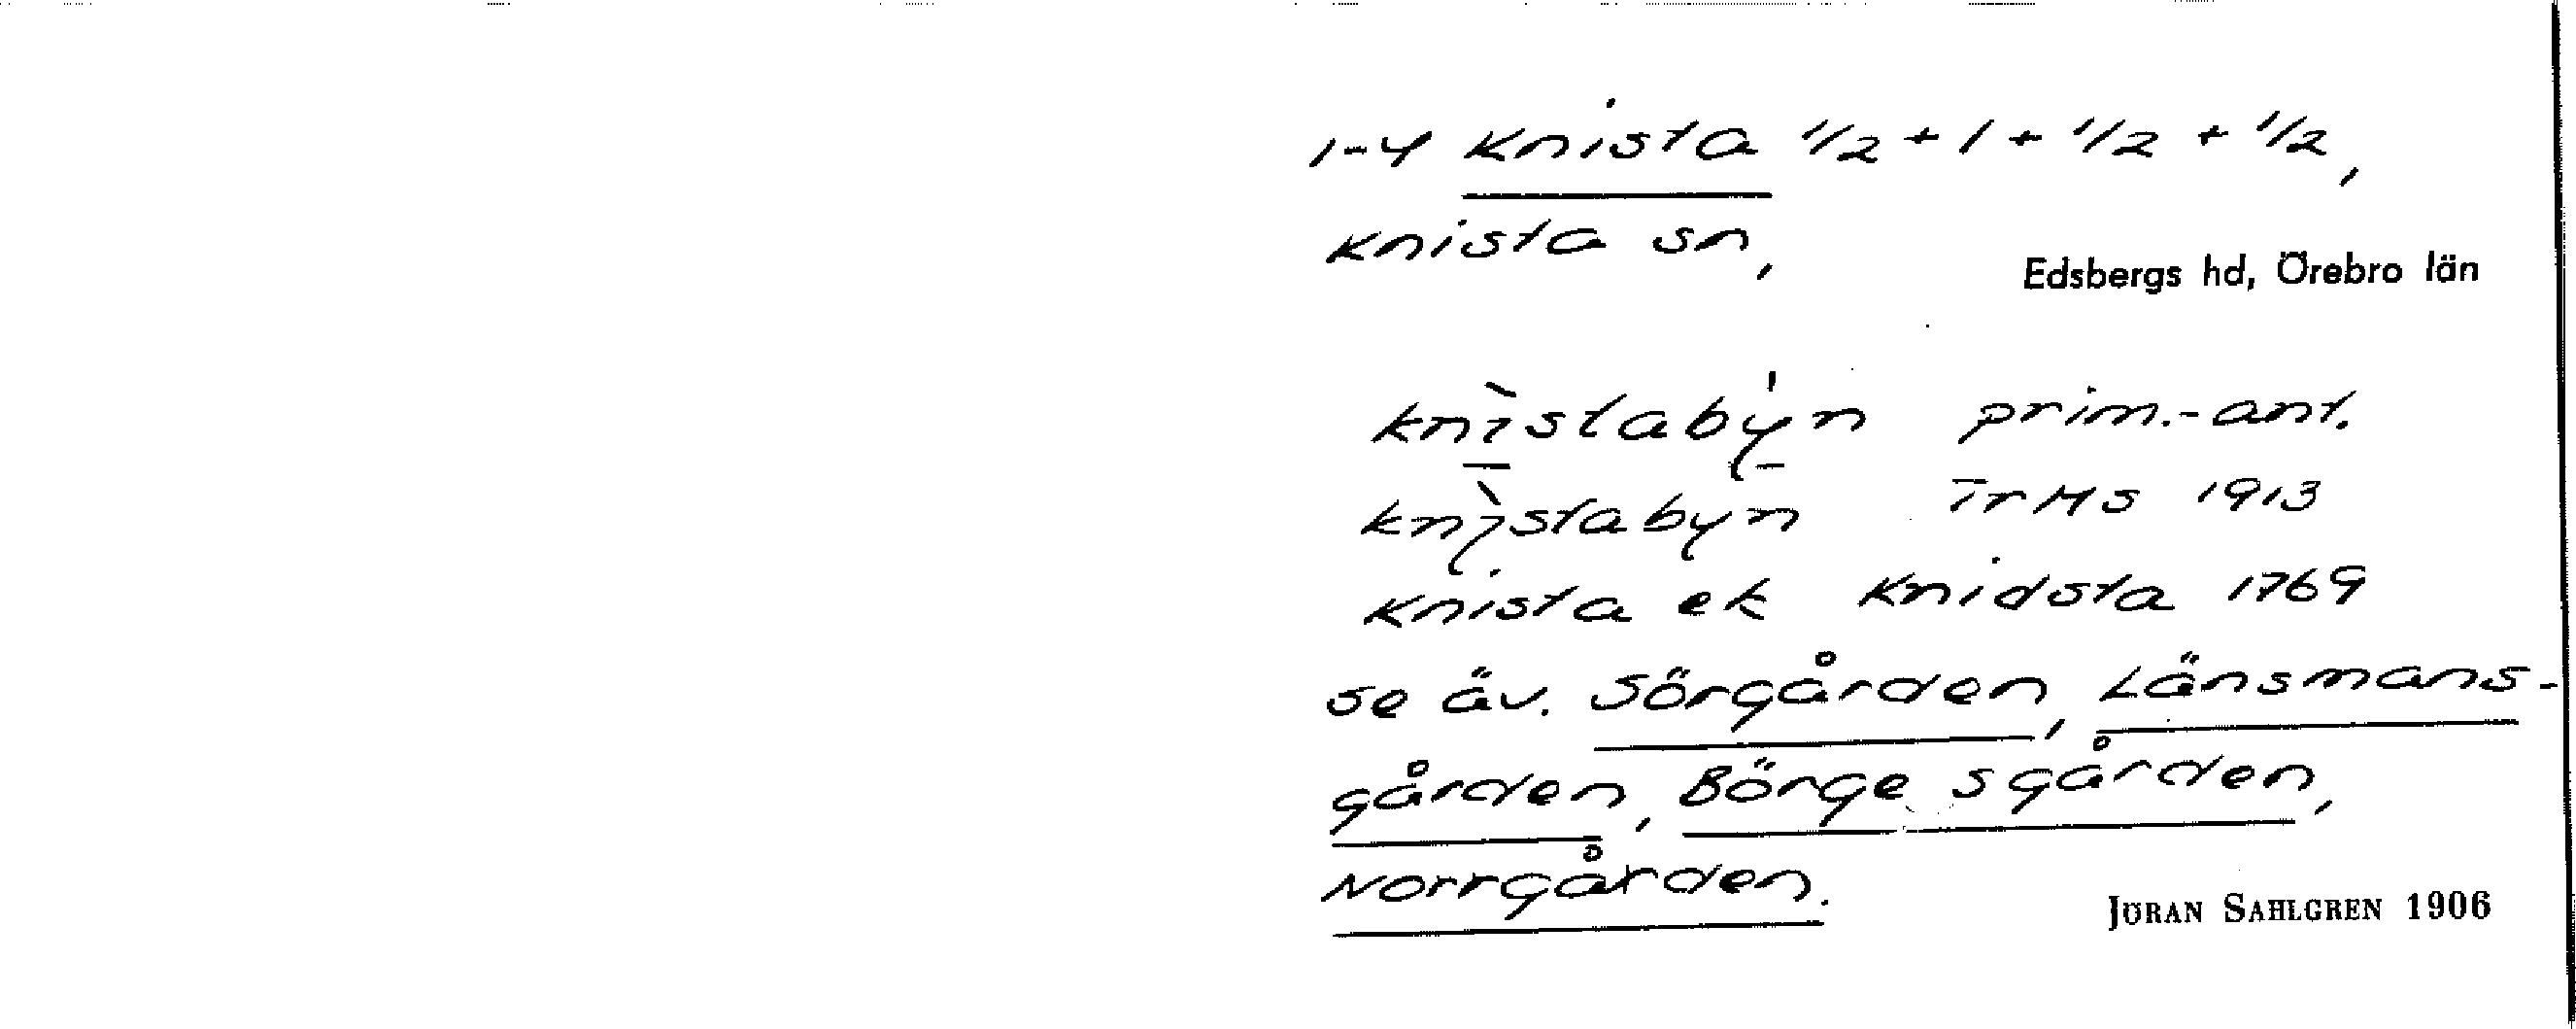 1-4 Knista 1/2 + 1 + 1/2 + 1/2,
Knista sn,
Edsbergs hd, Örebro län
knìstabýn prim.-ant.
knìstabyn TrMs 1913
Knista ek Knidsta 1769
se äv. Sörgården, Länsmans-
gården, Börgesgården,
Norrgården.
JÖRAN SAHLGREN 1906